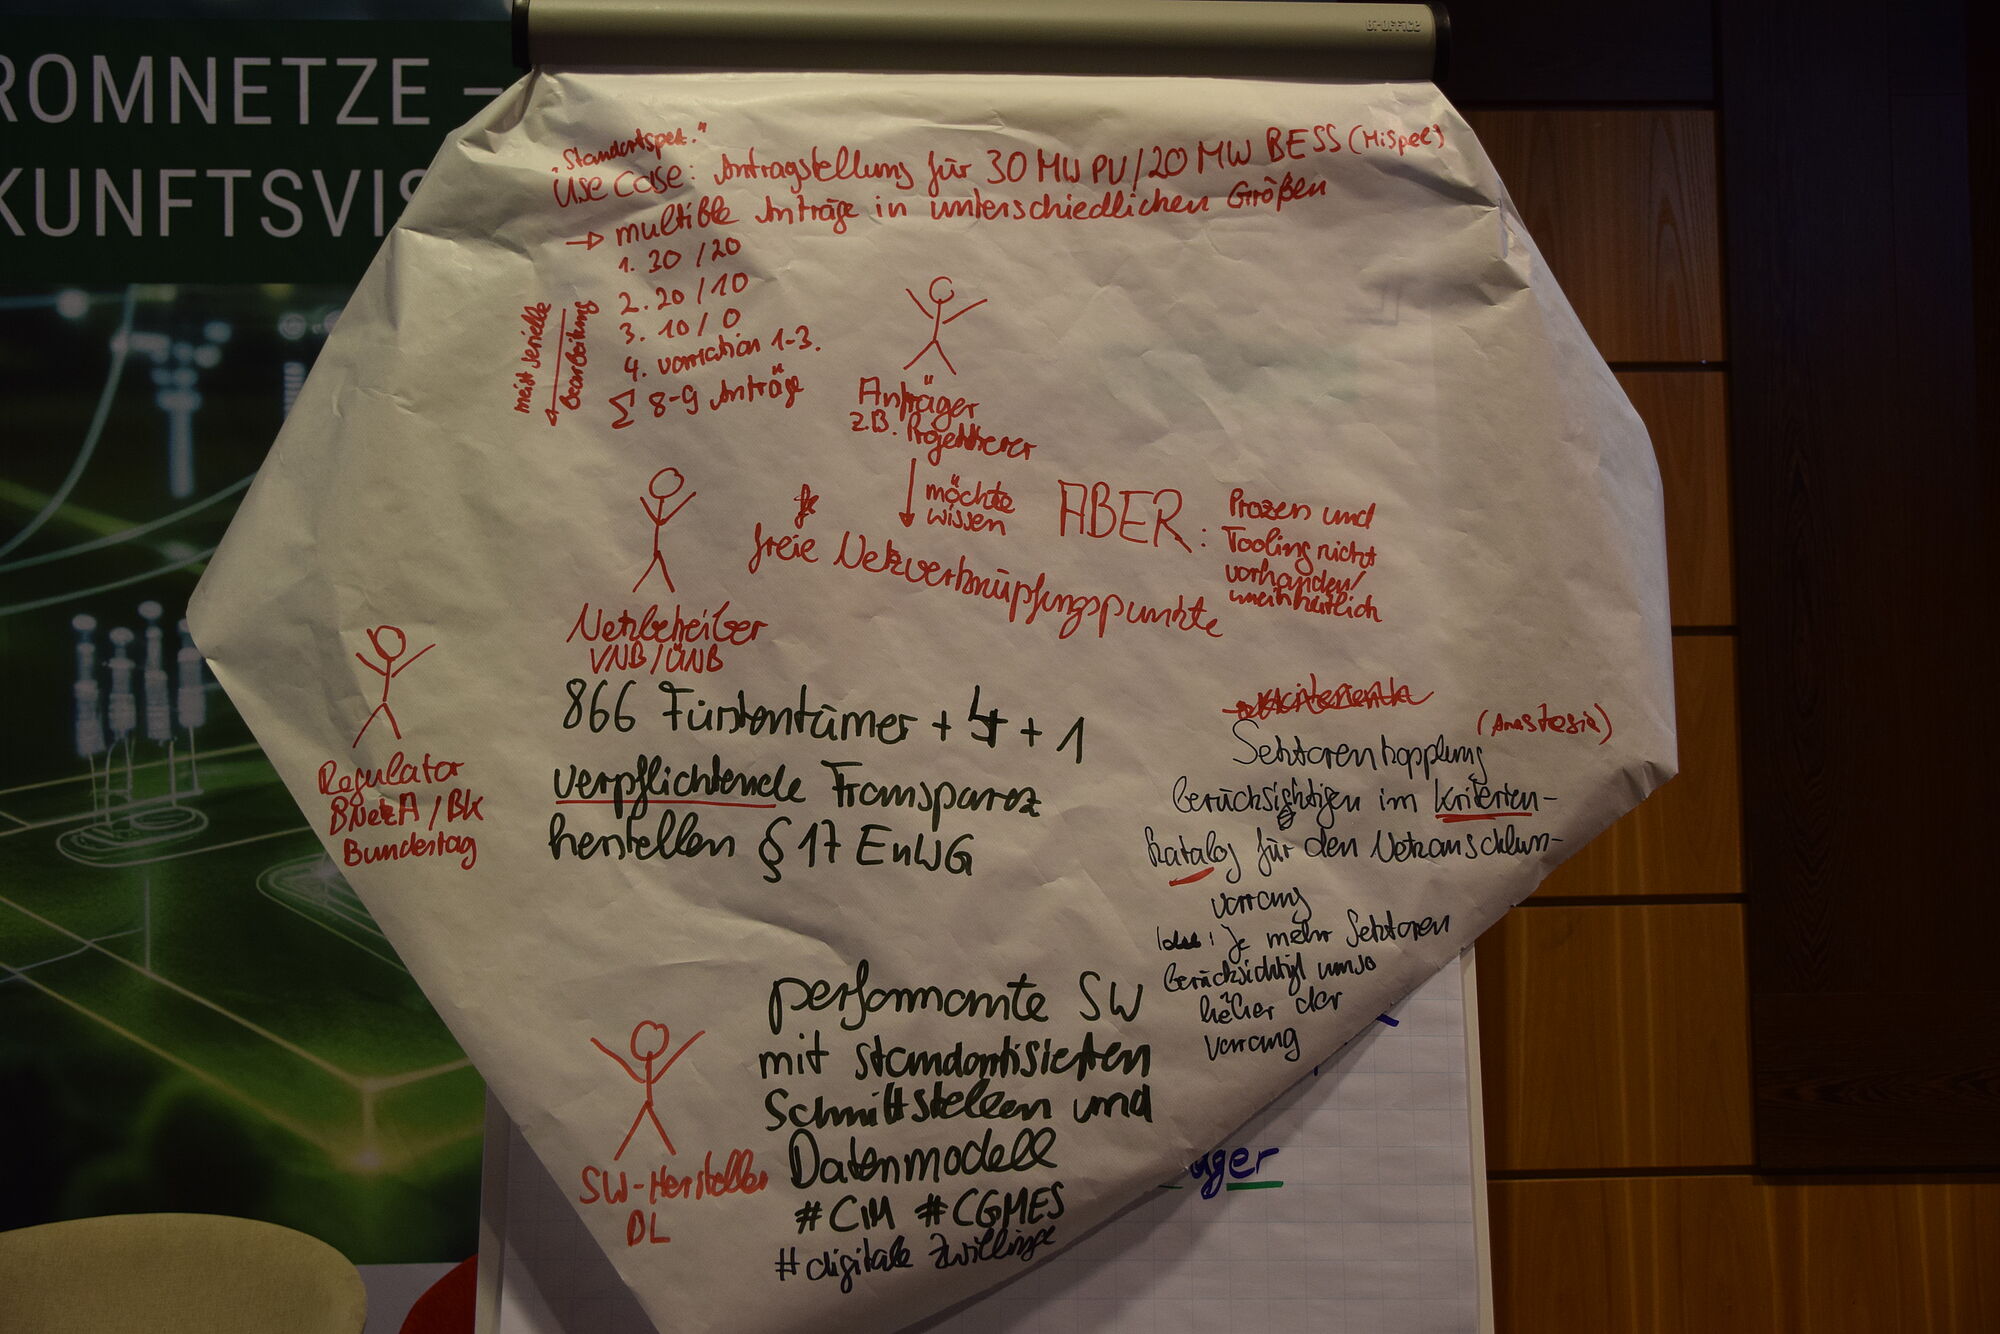 ROMNETZE –
KUNFTSVIS
„Standortspez."
Use Case: Antragstellung für 30 MW PV/20 MW BESS (MiSpeL)
→ multible Anträge in unterschiedlichen Größen
1. 30/20
2. 20/10
3. 10/0
4. variation 1-3.
Σ 8-9 Anträge
meist serielle
bearbeitung
Anträger
z.B. Projektierer
möchte
wissen
freie Netzverknüpfungspunkte
ABER:
Prozess und
Tooling nicht
vorhanden/
uneinheitlich
Netzbetreiber
VNB/ÜNB
866 Fürstentümer + 4 + 1
verpflichtende Transparenz
herstellen § 17 EnWG
Regulator
BNetzA / BK
Bundestag
(Anastasia)
Sektorenkopplung
berücksichtigen im Kriterien-
Katalog für den Netzanschluss-
vorrang
Idee: Je mehr Sektoren
berücksichtigt umso
höher der
Vorrang
performante SW
mit standartisierten
Schnittstellen und
Datenmodell
#CIM #CGMES
#digitale Zwillinge
SW-Hersteller
DL